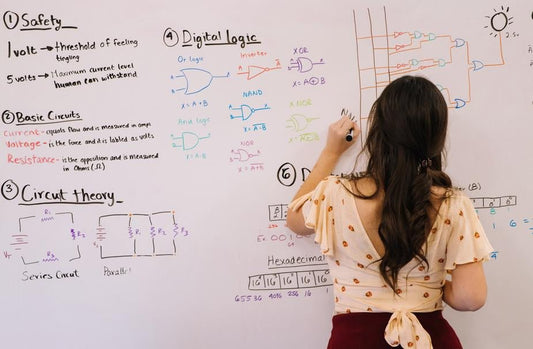 ① Safety
1 volt → threshold of feeling
tingling
5 volts → Maximum current level
human can withstand
② Basic Circuits
Current - equals flow and is measured in amps
Voltage - is the force and it is labled as volts
Resistance - is the opposition and is measured
in Ohms (Ω)
③ Circuit theory
R₁
R₂
R₃
V_T
Series Circuit
R₁
R₂
R₃
Parallel
④ Digital logic
Or logic
A
B
X = A + B
And logic
A
B
X = A·B
Inverter
A
NAND
A
B
X = A·B
NOR
A
B
X = A+B
XOR
A
B
X = A⊕B
X NOR
A
B
⑥ D
(B)
Ex. 001
Hexadecimal
16 16 16 16 16
65536 4096 256 16 1
2.5v